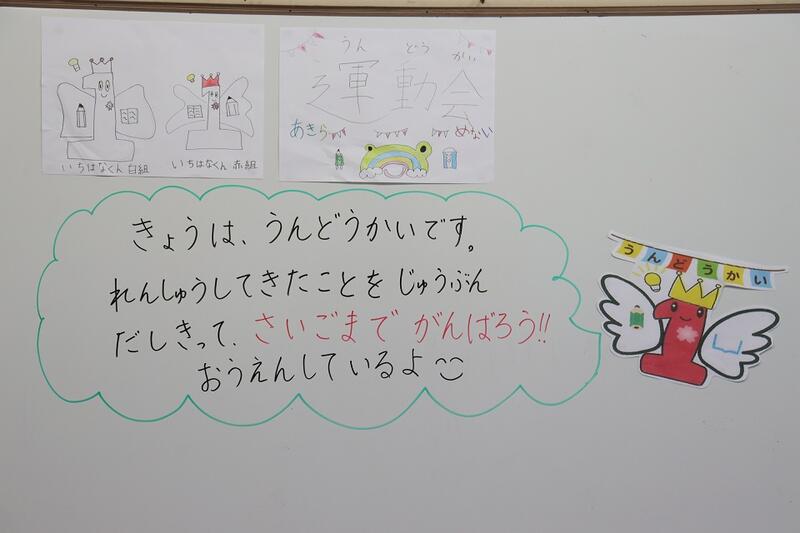 いちはなくん 白組
いちはなくん 赤組
うんどうかい
運動会
あきらめない
きょうは、うんどうかいです。
れんしゅうしてきたことを じゅうぶん
だしきって、さいごまで がんばろう!!
おうえんしているよ
うんどうかい
1